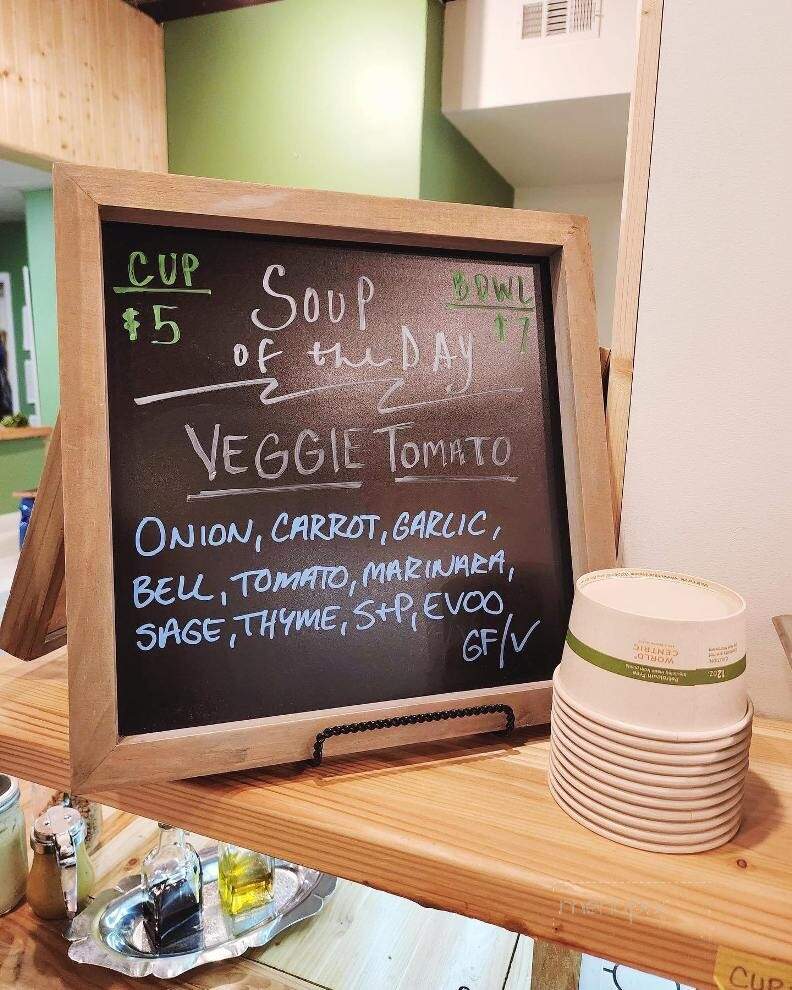 CUP
$5
BOWL
$7
SOUP
OF the DAY
VEGGIE TOMATO
ONION, CARROT, GARLIC,
BELL, TOMATO, MARINARA,
SAGE, THYME, S+P, EVOO
GF/V
12oz.
CAUTION
WORLD
CENTRIC
Petroleum Free
CUP